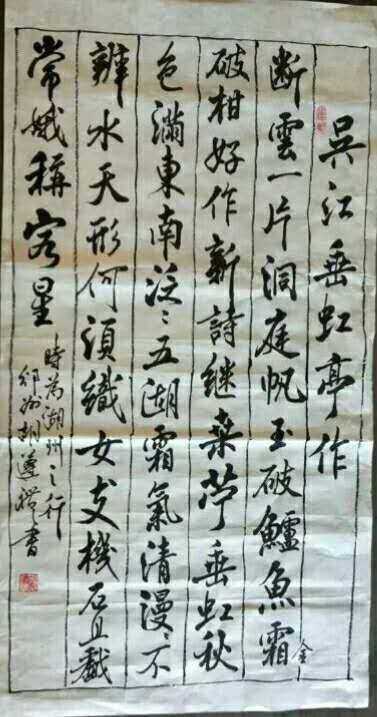 吳江垂虹亭作
斷雲一片洞庭帆玉破鱸魚霜
金
破柑好作新詩継桒苧垂虹秋
色滿東南泛〻五湖霜氣清漫〻不
辨水天形何須織女支機石且戲
常娥稱客星
時為湖州之行
胡遵禮書